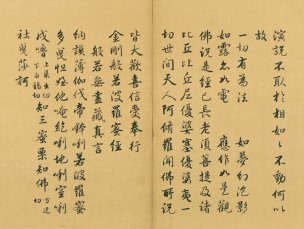 演說不取於相如々不動何以
故
一切有為法　如夢幻泡影
如露亦如電　應作如是觀
佛說是經已長老須菩提及諸
比丘比丘尼優婆塞優婆夷一
切世間天人阿脩羅聞佛所說
皆大歡喜信受奉行
金剛般若波羅蜜經
般若無盡藏真言
納謨薄伽伐帝鉢利若波羅蜜
多曳怛姪他唵紇利地利室利
戍嚕知三蜜栗知佛
社曳莎訶